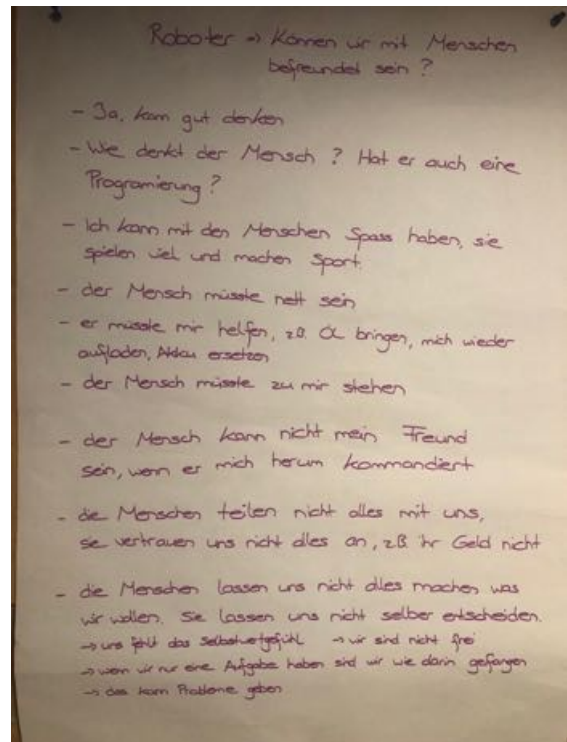 Roboter => Können wir mit Menschen
befreundet sein ?
- Ja, kann gut denken
- Wie denkt der Mensch ? Hat er auch eine
Programierung ?
- Ich kann mit den Menschen Spass haben, sie
spielen viel und machen Sport.
- der Mensch müsste nett sein
- er müsste mir helfen, z.B. Öl bringen, mich wieder
aufladen, Akku ersetzen
- der Mensch müsste zu mir stehen
- der Mensch kann nicht mein Freund
sein, wenn er mich herum kommandiert
- die Menschen teilen nicht alles mit uns,
sie vertrauen uns nicht alles an, z.B. ihr Geld nicht
- die Menschen lassen uns nicht alles machen was
wir wollen. Sie lassen uns nicht selber entscheiden.
→ uns fehlt das Selbstwertgefühl → wir sind nicht frei
→ wenn wir nur eine Aufgabe haben sind wir wie darin gefangen
→ das kann Probleme geben